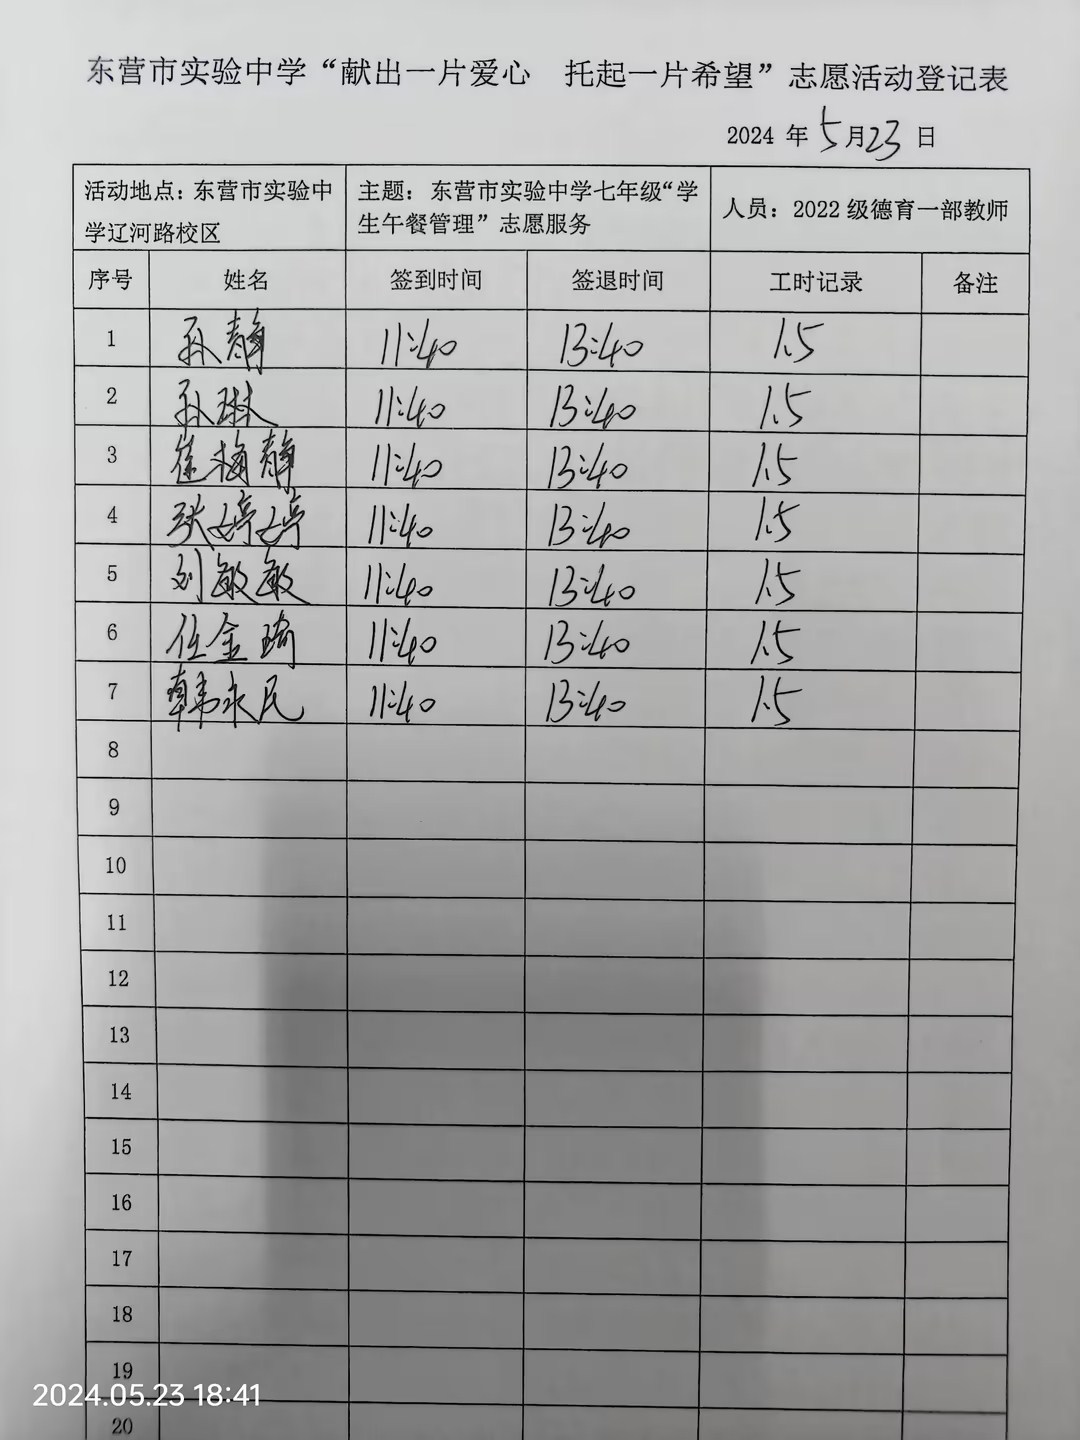 东营市实验中学“献出一片爱心　托起一片希望”志愿活动登记表
2024 年 5 月 23 日
活动地点：东营市实验中学辽河路校区 主题：东营市实验中学七年级“学生午餐管理”志愿服务 人员：2022 级德育一部教师
序号 姓名 签到时间 签退时间 工时记录 备注
1 孙静 11:40 13:40 1.5
2 孙琳 11:40 13:40 1.5
3 崔梅静 11:40 13:40 1.5
4 张婷婷 11:40 13:40 1.5
5 刘敏敏 11:40 13:40 1.5
6 任金琦 11:40 13:40 1.5
7 韩永民 11:40 13:40 1.5
8
9
10
11
12
13
14
15
16
17
18
19
20
2024.05.23 18:41